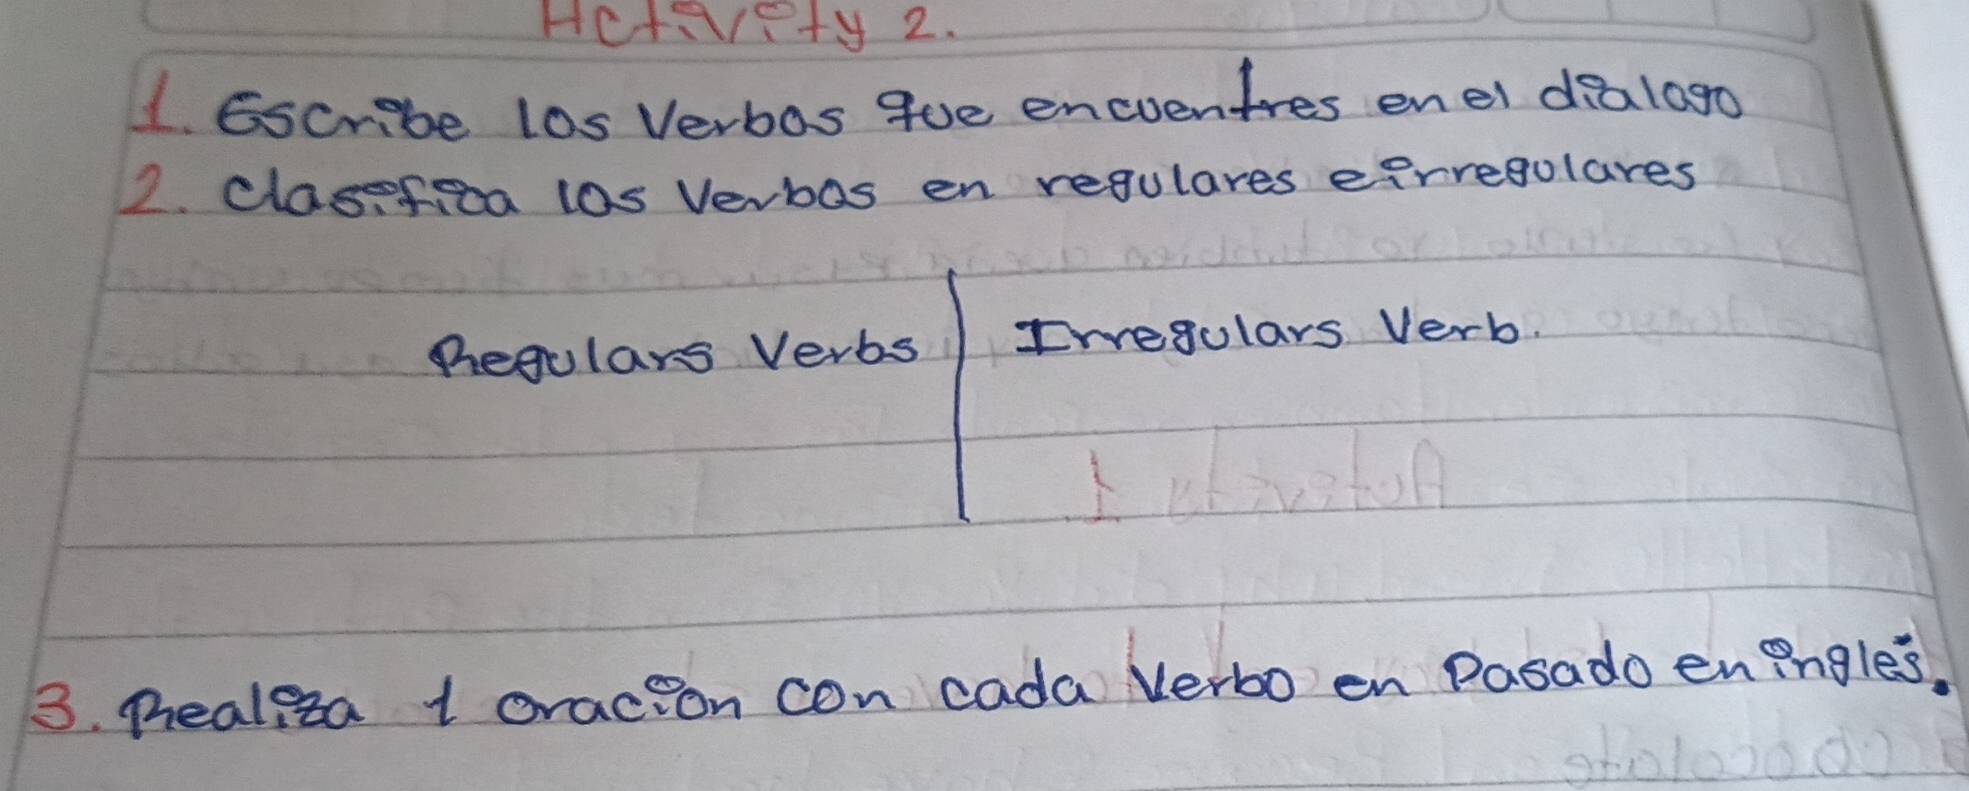 Activity 2.
1. Escribe los Verbos que encuentres en el dialago
2. Clasifica los Verbos en regulares e irregulares
Regulars Verbs Irregulars Verb.
3. Realiza 1 oración con cada Verbo en Pasado en inglés.